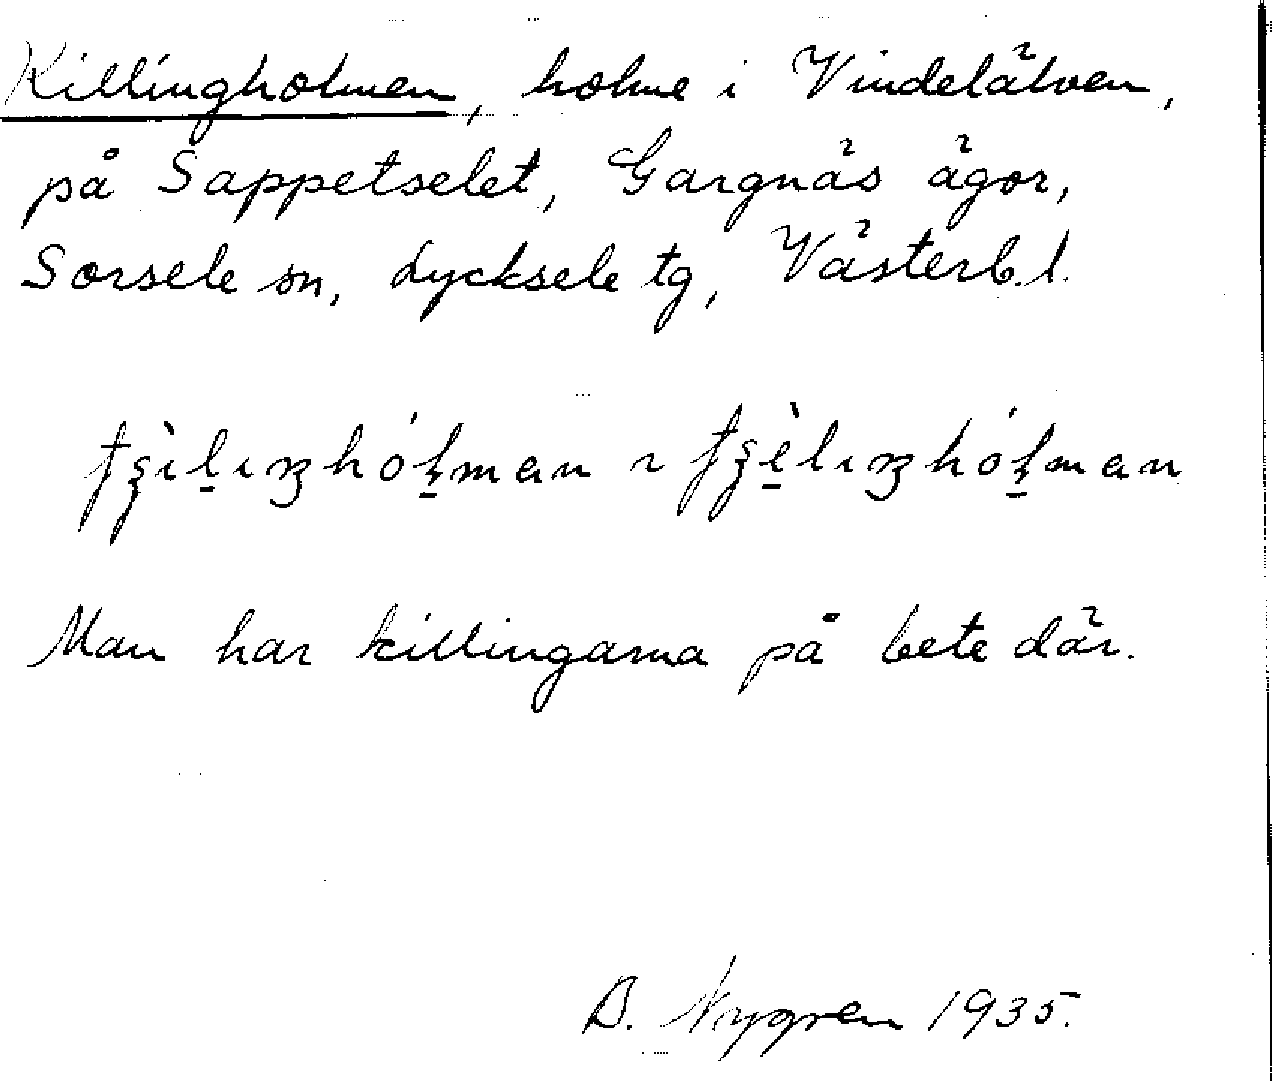 Killingholmen, holme i Vindelälven,
på Sappetselet, Gargnäs ägor,
Sorsele sn, Lycksele tg, Västerb.l.
Man har killingarna på bete där.
B. Nygren 1935.